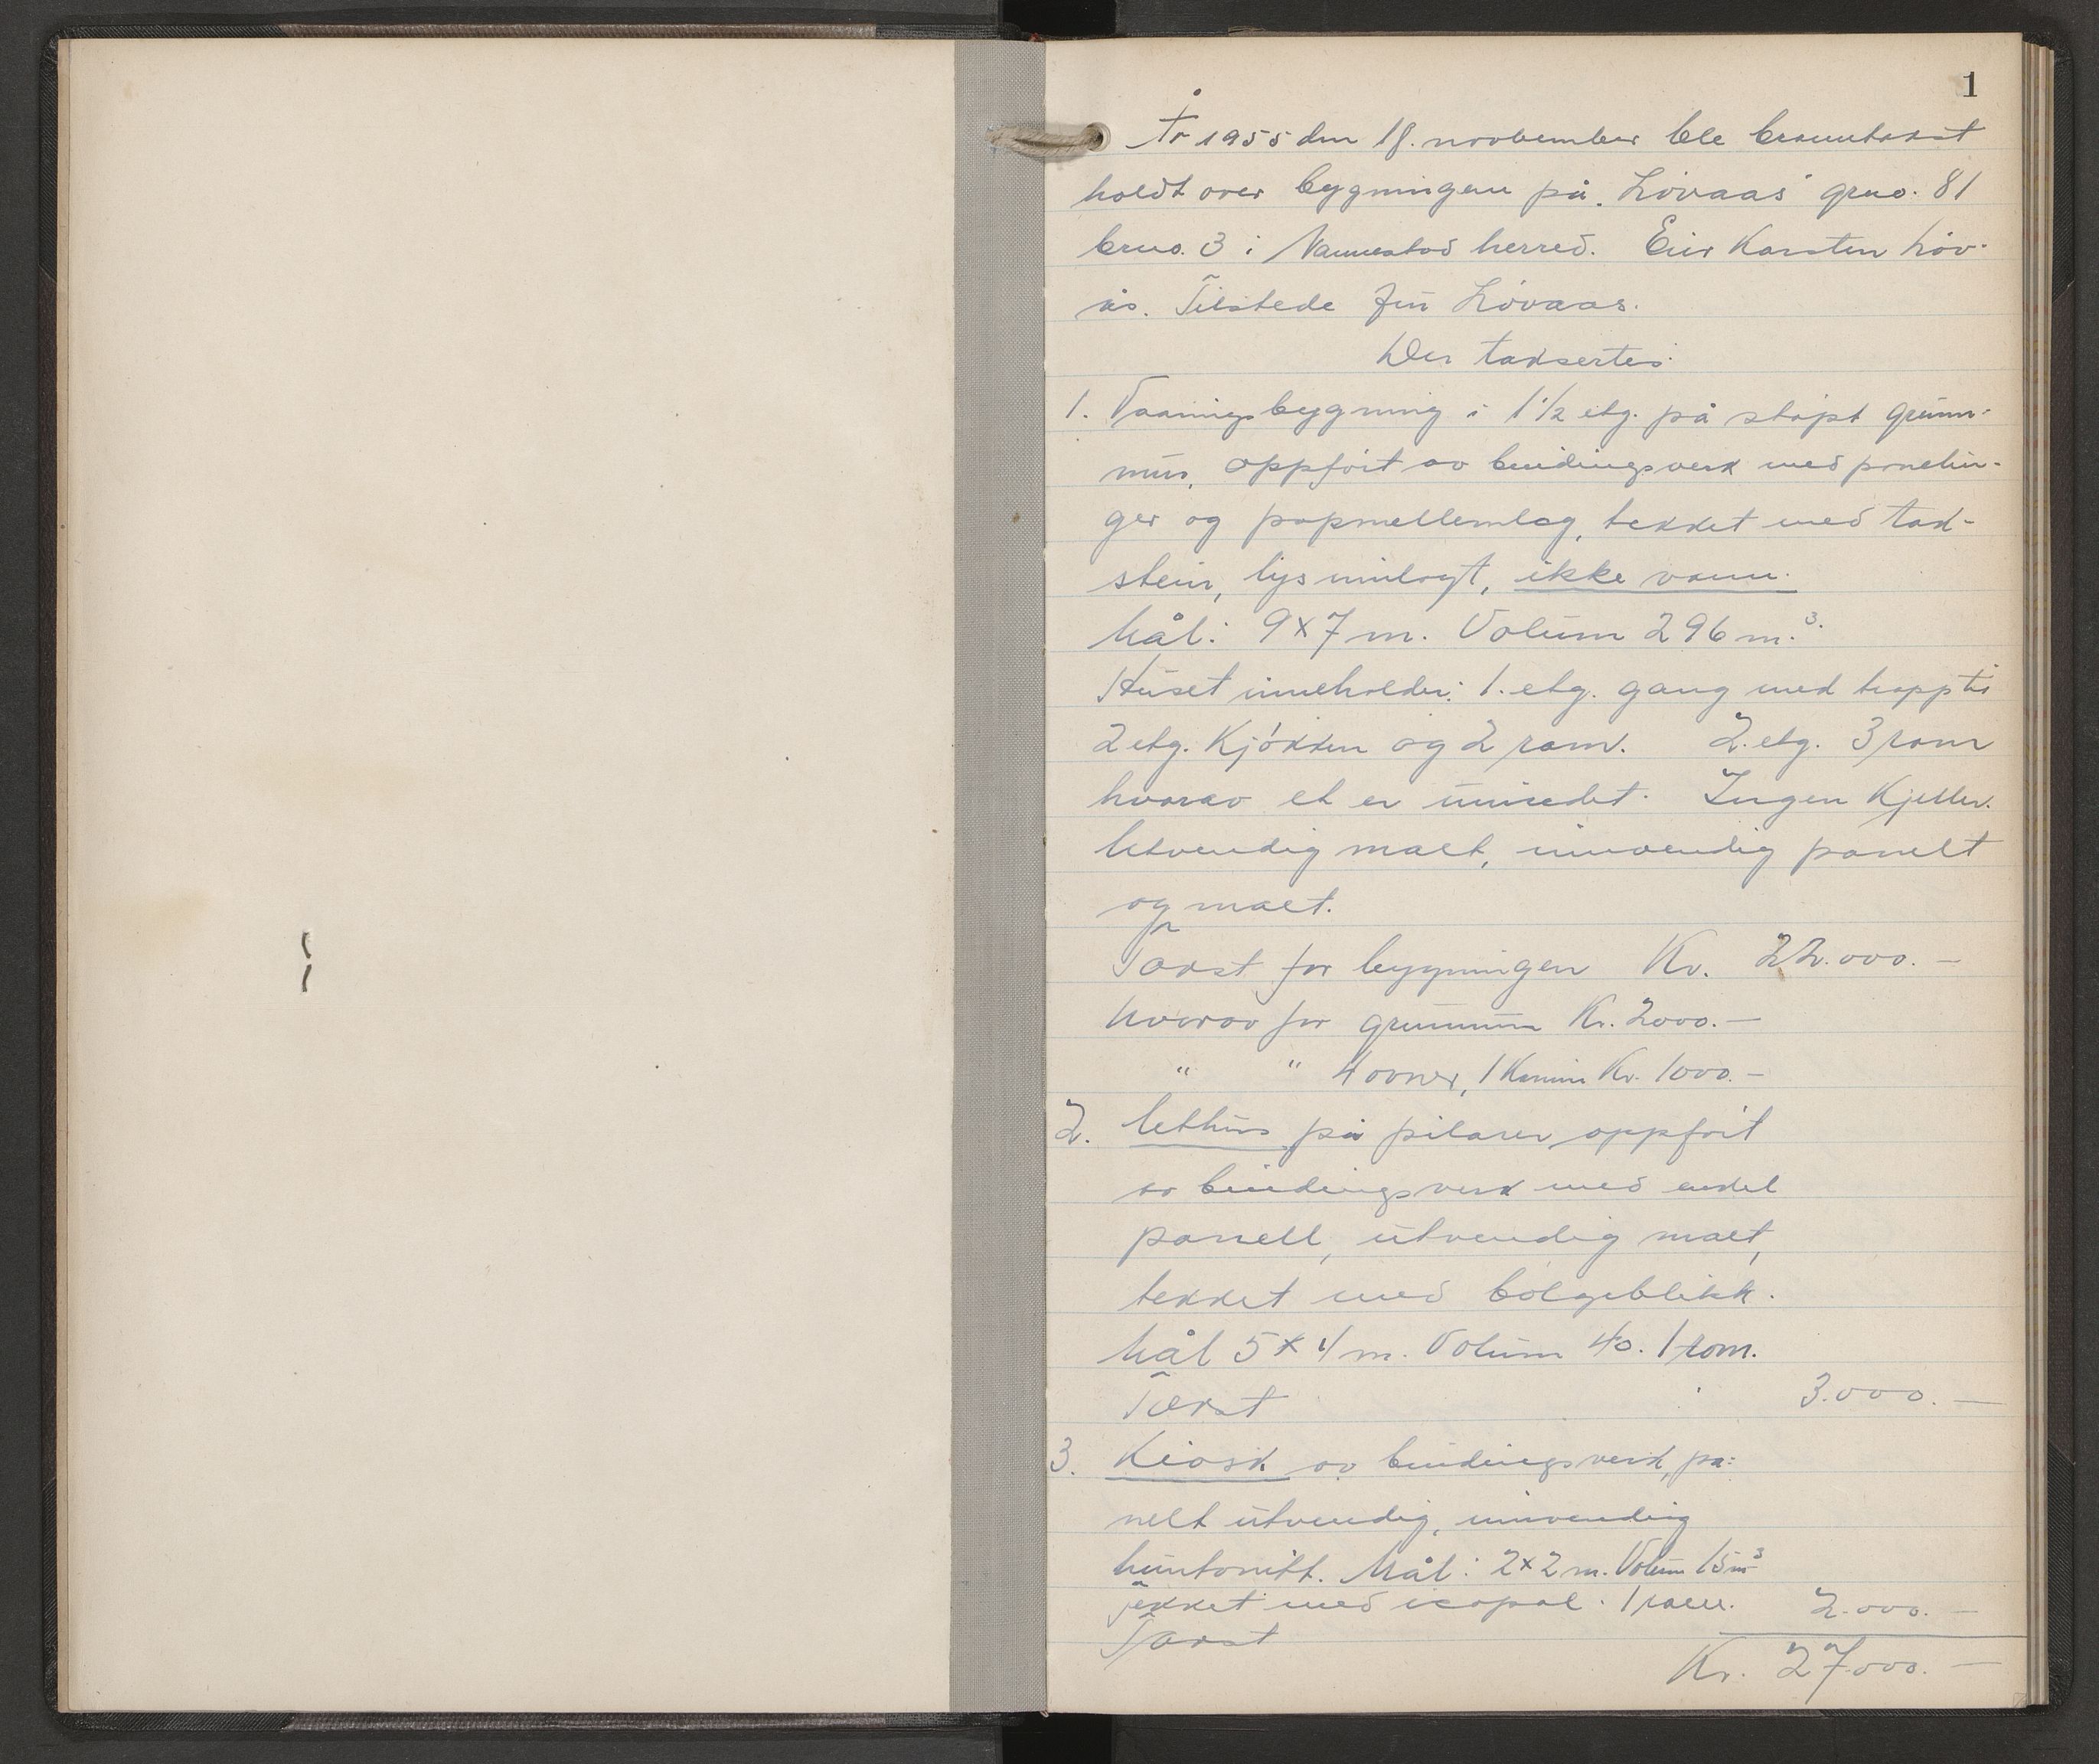 1
År 1955 den 18. november ble branntakst
holdt over bygningene på „Lövaas" gno. 81
brno. 3 i Nannestad herred. Eier Karsten Löv-
ås. Tilstede frú Lövaas.
Der taksertes:
1. Vaaningsbygning i 1 1/2 etg. på stöpt grúnn-
múr, oppfört av bindingsverk med panelin-
ger og papmellemlag, tekket med tak-
stein, lys innlagt, ikke vann.
Mål: 9x7 m. Volúm 296 m.³
Húset inneholder: 1. etg. gang med trapp til
2 etg. Kjökken og 2 rom. 2. etg. 3 rom
hvorav et er uinredet. Ingen Kjeller.
Utvendig malt, innvendig panelt
og malt.
Takst for bygningen Kr. 22.000.—
hvorav for grunnmur Kr. 2000.—
" " 4 ovner, 1 Kamin Kr. 1000.—
2. Uthús på pilarer oppfört
av bindingsverk med enkel
panell, útvendig malt,
tekket med bölgeblikk.
Mål 5x4 m. Volúm 40. 1 rom.
Takst 3.000.—
3. Kiosk av bindingsverk, pa-
nelt útvendig, innvendig
húntonitt. Mål: 2x2 m. Volúm 15 m³
Tekket med icopal. 1 rom. 2.000.—
Takst
Kr. 27000.—